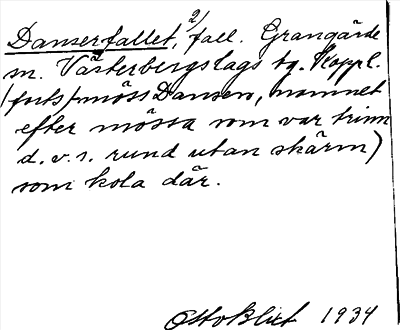 Danserfallet, 2/ fall. Grangärde
sn. Västerbergslags tg. Koppl.
(forts) möss Dansers, namnet
efter mössa som var trinn
d.v.s. rund utan skärm)
som kola där.
Otto Blixt 1934